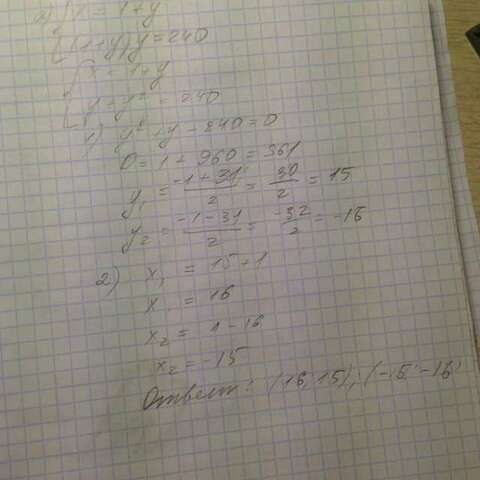 x = 1+y
(1+y)y = 240
x = 1+y
y+y² = 240
1) y²+y-240=0
D=1+960=961
y₁ = (-1+31)/2 = 30/2 = 15
y₂ = (-1-31)/2 = -32/2 = -16
2) x₁ = 15+1
x₁ = 16
x₂ = 1-16
x₂ = -15
Ответ: (16;15); (-15;-16)